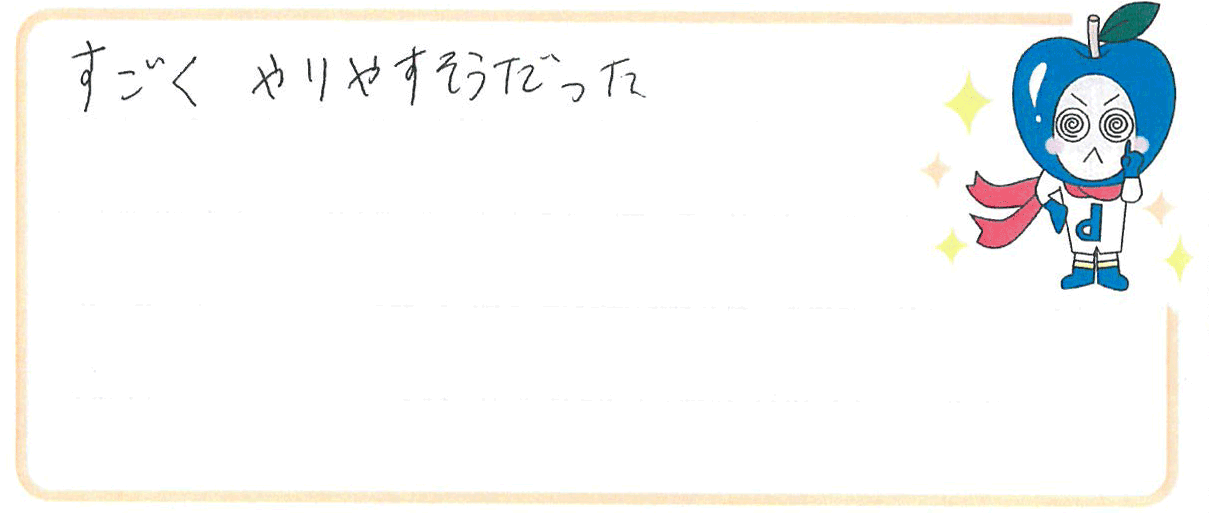 すごく やりやすそうだった
d